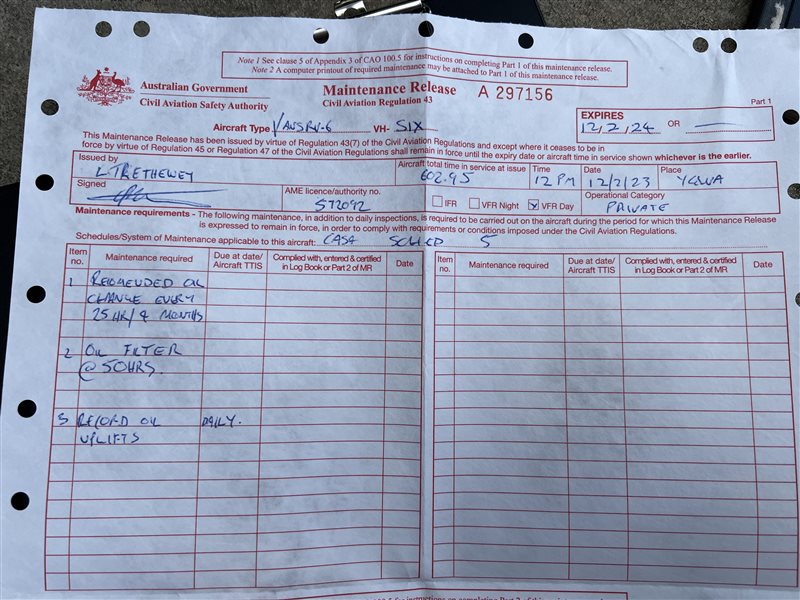 Note 1 See clause 5 of Appendix 3 of CAO 100.5 for instructions on completing Part 1 of this maintenance release.
Note 2 A computer printout of required maintenance may be attached to Part 1 of this maintenance release.
Australian Government
Civil Aviation Safety Authority
Maintenance Release
Civil Aviation Regulation 43
A 297156
Part 1
Aircraft Type VANSRV-6 VH- SIX
EXPIRES
12/2/24 OR —
This Maintenance Release has been issued by virtue of Regulation 43(7) of the Civil Aviation Regulations and except where it ceases to be in
force by virtue of Regulation 45 or Regulation 47 of the Civil Aviation Regulations shall remain in force until the expiry date or aircraft time in service shown whichever is the earlier.
Issued by
L TRETHEWEY
Aircraft total time in service at issue
602.95
Time
12 PM
Date
12/2/23
Place
Signed
AME licence/authority no.
S72092
IFR VFR Night VFR Day
Operational Category
PRIVATE
Maintenance requirements - The following maintenance, in addition to daily inspections, is required to be carried out on the aircraft during the period for which this Maintenance Release
is expressed to remain in force, in order to comply with requirements or conditions imposed under the Civil Aviation Regulations.
Schedules/System of Maintenance applicable to this aircraft: CASA SCHED 5
Item no. Maintenance required Due at date/ Aircraft TTIS Complied with, entered & certified in Log Book or Part 2 of MR Date
Item no. Maintenance required Due at date/ Aircraft TTIS Complied with, entered & certified in Log Book or Part 2 of MR Date
1 OIL
CHANGE EVERY
25 HR/4 MONTHS
2 OIL FILTER
@ 50HRS.
3 RECORD OIL DAILY.
UPLIFTS